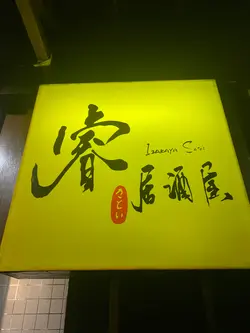 睿
さとい
Izakaya Sasi
居酒屋